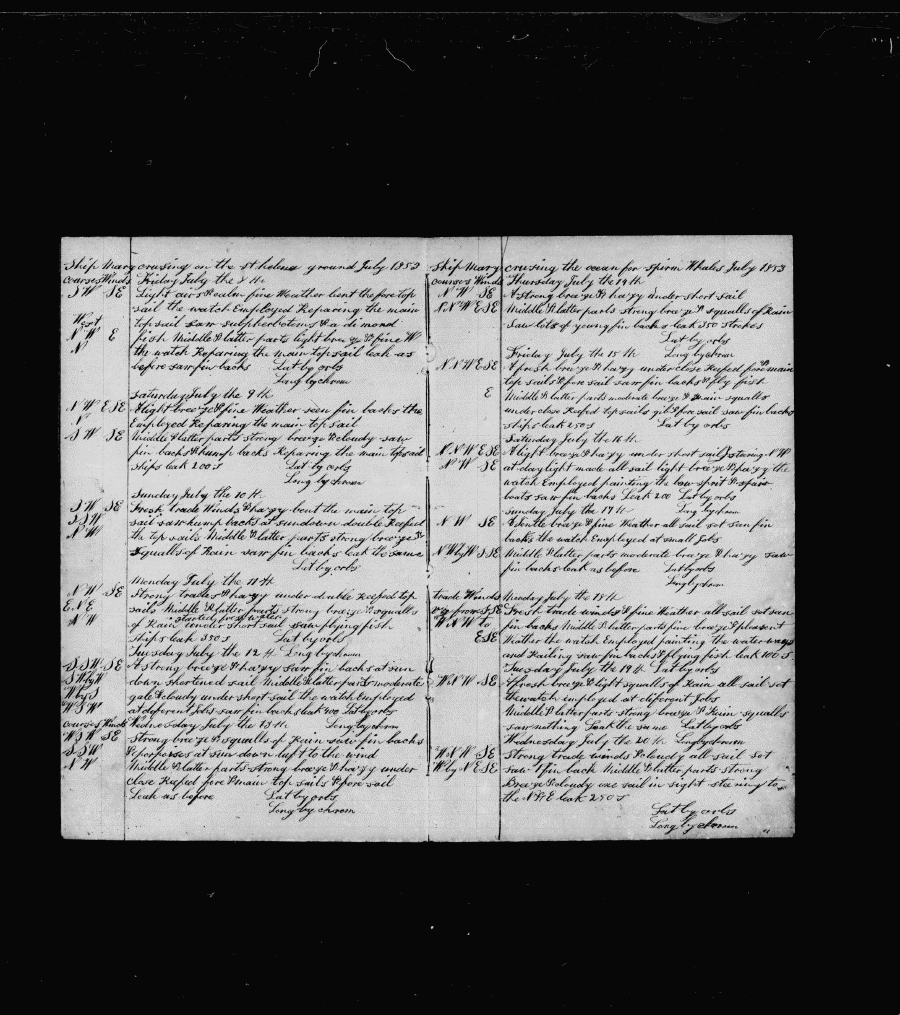 Ship Mary cruising on the st helena ground July 1853
courses Winds Friday July the 8 th
S W SE Light airs & calm fine Weather bent the fore top
sail the watch Employed Reparing the main
West topsail saw sulpherbotoms & a dimond
N W E fish Middle & latter parts light breaze & fine W
N the watch Reparing the main topsail leak as
before saw fin backs Lat by orbs
Long by chrom
Saturday July the 9 th
N W ESE A light breaze & fine Weather seen fin backs the
N Employed Reparing the main top sail
S W SE Middle & latter parts strong breaze & cloudy saw
fin backs & hump backs Reparing the main topsail
ships leak 200 S Lat by orbs
Long by chrom
Sunday July the 10 th
S W SE Fresh trade Winds & hazy bent the main top
S S W sail saw hump backs at sundown double Reefed
N W the top sails Middle & latter parts strong breaze &
squalls of Rain saw fin backs leak the same
Lat by orbs
Monday July the 11 th
N W SE Strong trades & hazy under duble Reefed top
E N E sails Middle & latter parts strong breaze & squalls
N W of Rain under short sail saw flying fish
started fresh water
ships leak 350 S Lat by orbs
Tuesday July the 12 th Long by chrom
S S W SE A strong breaze & hazy saw fin backs at sun
S W by W down shortened sail Middle & latter parts moderate
W by S gale & cloudy under short sail the watch Employed
W S W at deferent Jobs saw fin backs leak 400 Lat by orbs
courses Winds Wednesday July the 13 th Long by chrom
W S W SE strong breaze & squalls of Rain saw fin backs
S S W & porpoises at sundown luft to the wind
N W Middle & latter parts strong breaze & hazy under
close Reefed fore & main top sails & fore sail
Leak as before Lat by orbs
Long by chrom
Ship Mary cruising the ocean for spirm Whales July 1853
courses Winds Thursday July the 14 th
N W SE A strong breaze & hazy under short sail
N N W ESE Middle & latter parts strong breaze & squalls of Rain
saw lots of young fin backs leak 350 strokes
Lat by orbs
Friday July the 15 th Long by chrom
N N W ESE A fresh breaze & hazy under close Reefed fore & main
top sails & fore sail saw fin backs & fly fish
E Middle & latter parts moderate breaze & Rain squalls
under close Reefed top sails gib & fore sail saw fin backs
ships leak 250 S Lat by orbs
Saturday July the 16 th
N N W ESE A light breaze & hazy under short sail stearing N W
N W SE at day light made all sail light breaze & hazy the
watch Employed painting the bow sprit & spair
boats saw fin backs Leak 200 Lat by orbs
Sunday July the 17 th Long by chrom
N W SE A Gentle breaze & fine Weather all sail set seen fin
backs the watch Employed at small Jobs
N W by W SE Middle & latter parts moderate breaze & hazy saw
fin backs leak as before Lat by orbs
Long by chrom
trade Winds Monday July the 18 th
SE Fresh trade winds & fine Weather all sail set seen
W N W to fin backs Middle & latter parts fine breaze & pleasent
ESE Weather the watch Employed painting the water ways
and Railing saw fin backs & flying fish leak 100 S
Tuesday July the 19 th Lat by orbs
W N W SE A fresh breaze & light squalls of Rain all sail set
the watch employed at different Jobs
Middle & latter parts strong breaze & Rain squalls
saw nothing Leak the same Lat by orbs
Wednesday July the 20 th Long by chrom
W N W SE Strong trade winds & cloudy all sail set
W by N ESE saw 1 fin back Middle & latter parts strong
Breaze & cloudy one sail in sight steering to
the N & E leak 250 S
Lat by orbs
Long by chrom